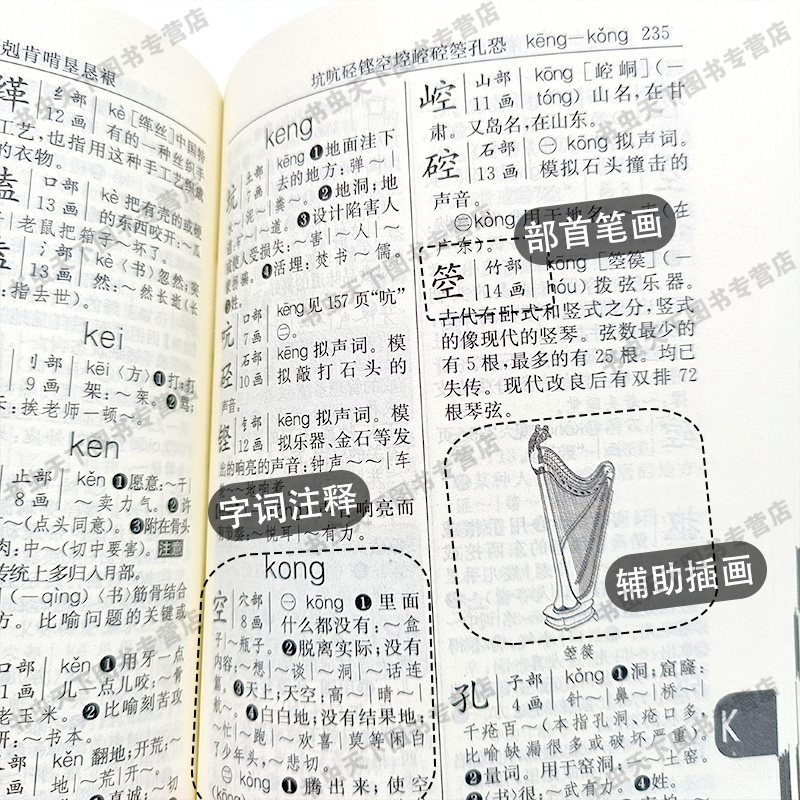 剋肯啃垦恳裉
缂
纟部
12画
kè[缂丝]中国特
有的一种丝织手
工艺,也指用这种手工艺织做
的衣物。
嗑
口部
13画
kè 把有壳的或硬
的东西咬开:～瓜
老鼠把箱子～坏了。
溘
氵部
13画
kè〈书〉忽然;突
然:～然长逝(长
:指去世)。
kei
刂部
9画
kēi〈方〉❶打:打
架:～架。❷骂;
:挨老师一顿～。
ken
止部
8画
kěn ❶愿意:～干
～卖力气。❷许
(点头同意)。❸附在骨头
肉:中～(切中要害)。注意
传统上多归入月部。
(—qìng)〈书〉筋骨结合
比喻问题的关键或
口部
kěn ❶用牙一点
儿一点儿咬:～
老玉米。❷比喻刻苦攻
～书本。
kěn 翻地;开荒:～
坑吭硁铿空埪崆硿箜孔恐 kēng—kǒng 235
keng
坑
土部
7画
kēng ❶地面洼下
去的地方:弹～|
水～|泥～|粪～。❷地洞;地
道:～道。❸设计陷害人
或使人受损失:～害|～人|～
❹活埋:焚书～儒。
❺姓。
吭
口部
7画
kēng 见157页“吭”
㊀。
硁
石部
10画
kēng 拟声词。模
拟敲打石头的
声音。
铿
钅部
12画
kēng 拟声词。模
拟乐器、金石等发
出的响亮的声音:钟声～～|车
字词注释
响亮而
～悦耳|～有力。
kong
空
穴部
8画
㊀ kōng ❶里面
什么都没有:～盒
子|～瓶子。❷脱离实际;没有
内容:～想|～谈|～洞|～话连
篇。❸天上;天空:高～|晴～|
航～。❹白白地;没有结果地:
～忙|～跑|～欢喜|莫等闲白
了少年头,～悲切
㊁ kòng ❶腾出来;使空
崆
山部
11画
kōng [崆峒](—
tóng)山名,在甘
肃。又岛名,在山东。
硿
石部
13画
㊀ kōng 拟声词。
模拟石头撞击的
声音。
㊁kòng 用于地名
广东)。
部首笔画
箜
竹部
14画
kōng [箜篌](—
hóu)拨弦乐器。
古代有卧式和竖式之分,竖式
的像现代的竖琴。弦数最少的
有5根,最多的有25根。均已
失传。现代改良后有双排72
根琴弦。
辅助插画
箜篌
孔
子部
4画
kǒng ❶洞;窟窿:
针～|鼻～|桥～|
千疮百～(本指孔洞、疮口多,
比喻缺漏很多或破坏严重)。
❷量词。用于窑洞:一～土窑。
❸〈书〉很:～武有力。❹姓。
K
书虫天下图书专营店